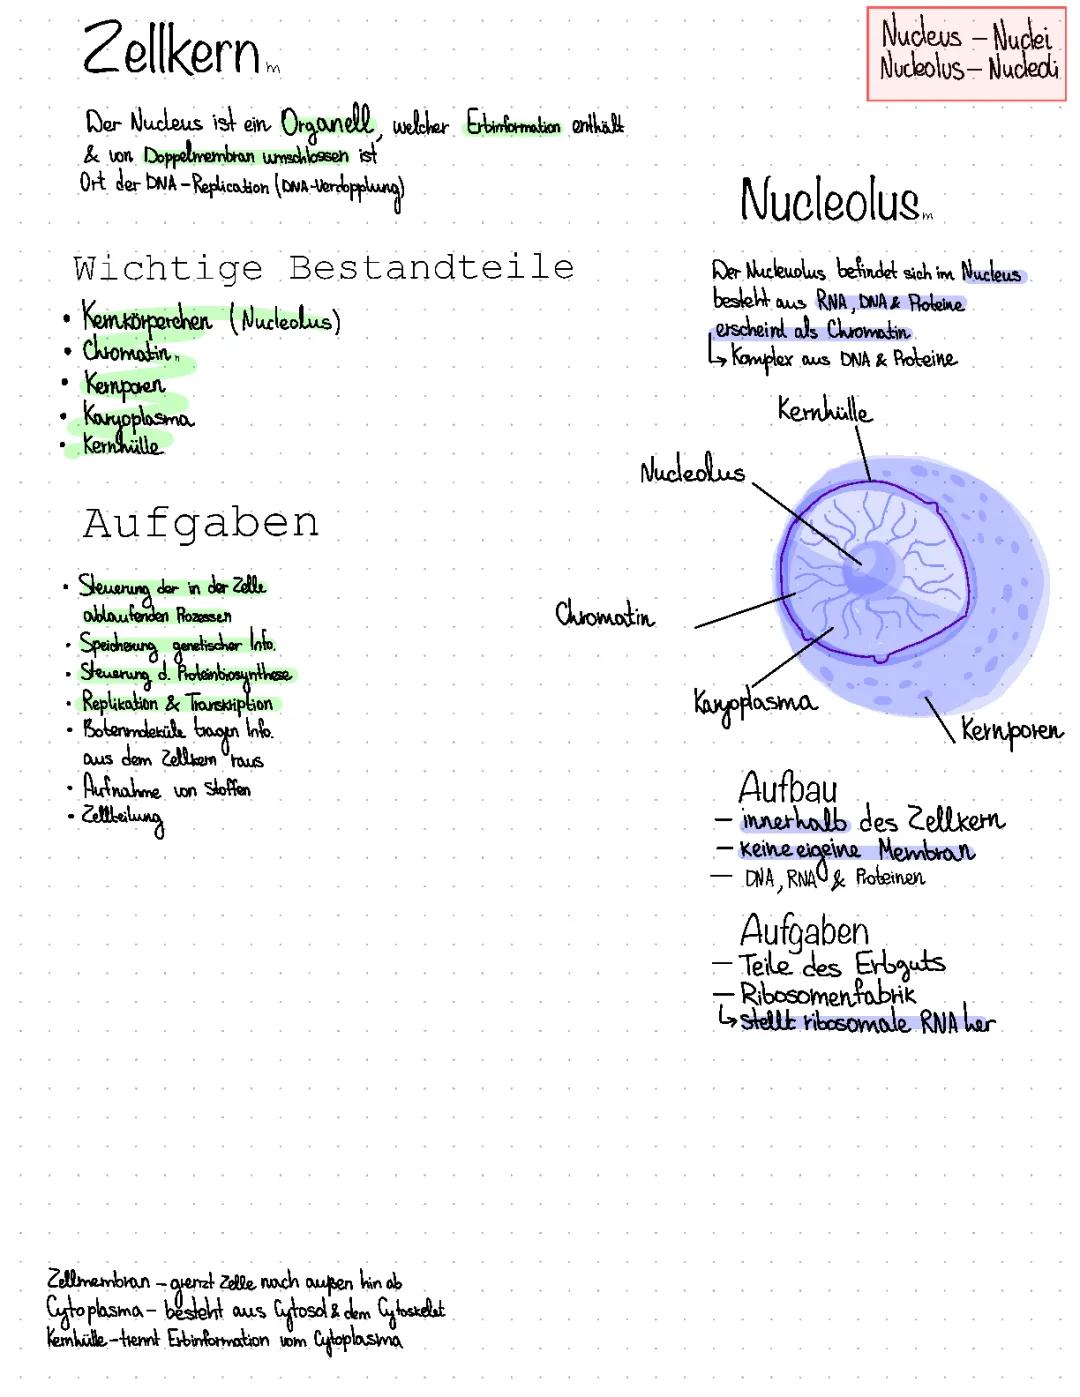 Zellkern m
Der Nucleus ist ein Organell, welcher Erbinformation enthält
& von Doppelmembran umschlossen ist
Ort der DNA-Replication (DNA-Verdopplung)
Wichtige Bestandteile
• Kernkörperchen (Nucleolus)
• Chromatin
• Kernporen
• Karyoplasma
• Kernhülle
Aufgaben
• Steuerung der in der Zelle
ablaufenden Prozessen
• Speicherung genetischer Info.
• Steuerung d. Proteinbiosynthese
• Replikation & Transkription
• Botenmoleküle tragen Info.
aus dem Zellkern raus
• Aufnahme von Stoffen
• Zellteilung
Nucleus – Nuclei
Nucleolus – Nucleoli
Nucleolus m
Der Nucleuolus befindet sich im Nucleus
besteht aus RNA, DNA & Proteine
erscheind als Chromatin
↳ Komplex aus DNA & Proteine
Kernhülle
Nucleolus
Chromatin
Karyoplasma
Kernporen
Aufbau
– innerhalb des Zellkern
– keine eigeine Membran
– DNA, RNA & Proteinen
Aufgaben
– Teile des Erbguts
– Ribosomenfabrik
↳ stellt ribosomale RNA her
Zellmembran – grenzt Zelle nach außen hin ab
Cytoplasma – besteht aus Cytosol & dem Cytoskelet
Kernhülle – trennt Erbinformation vom Cytoplasma